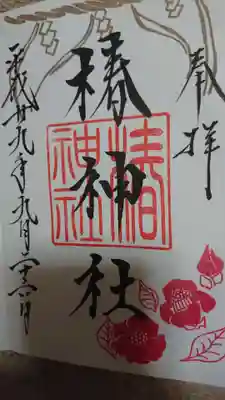 奉拝
椿神社
椿神社
平成廿九年九月二十二日